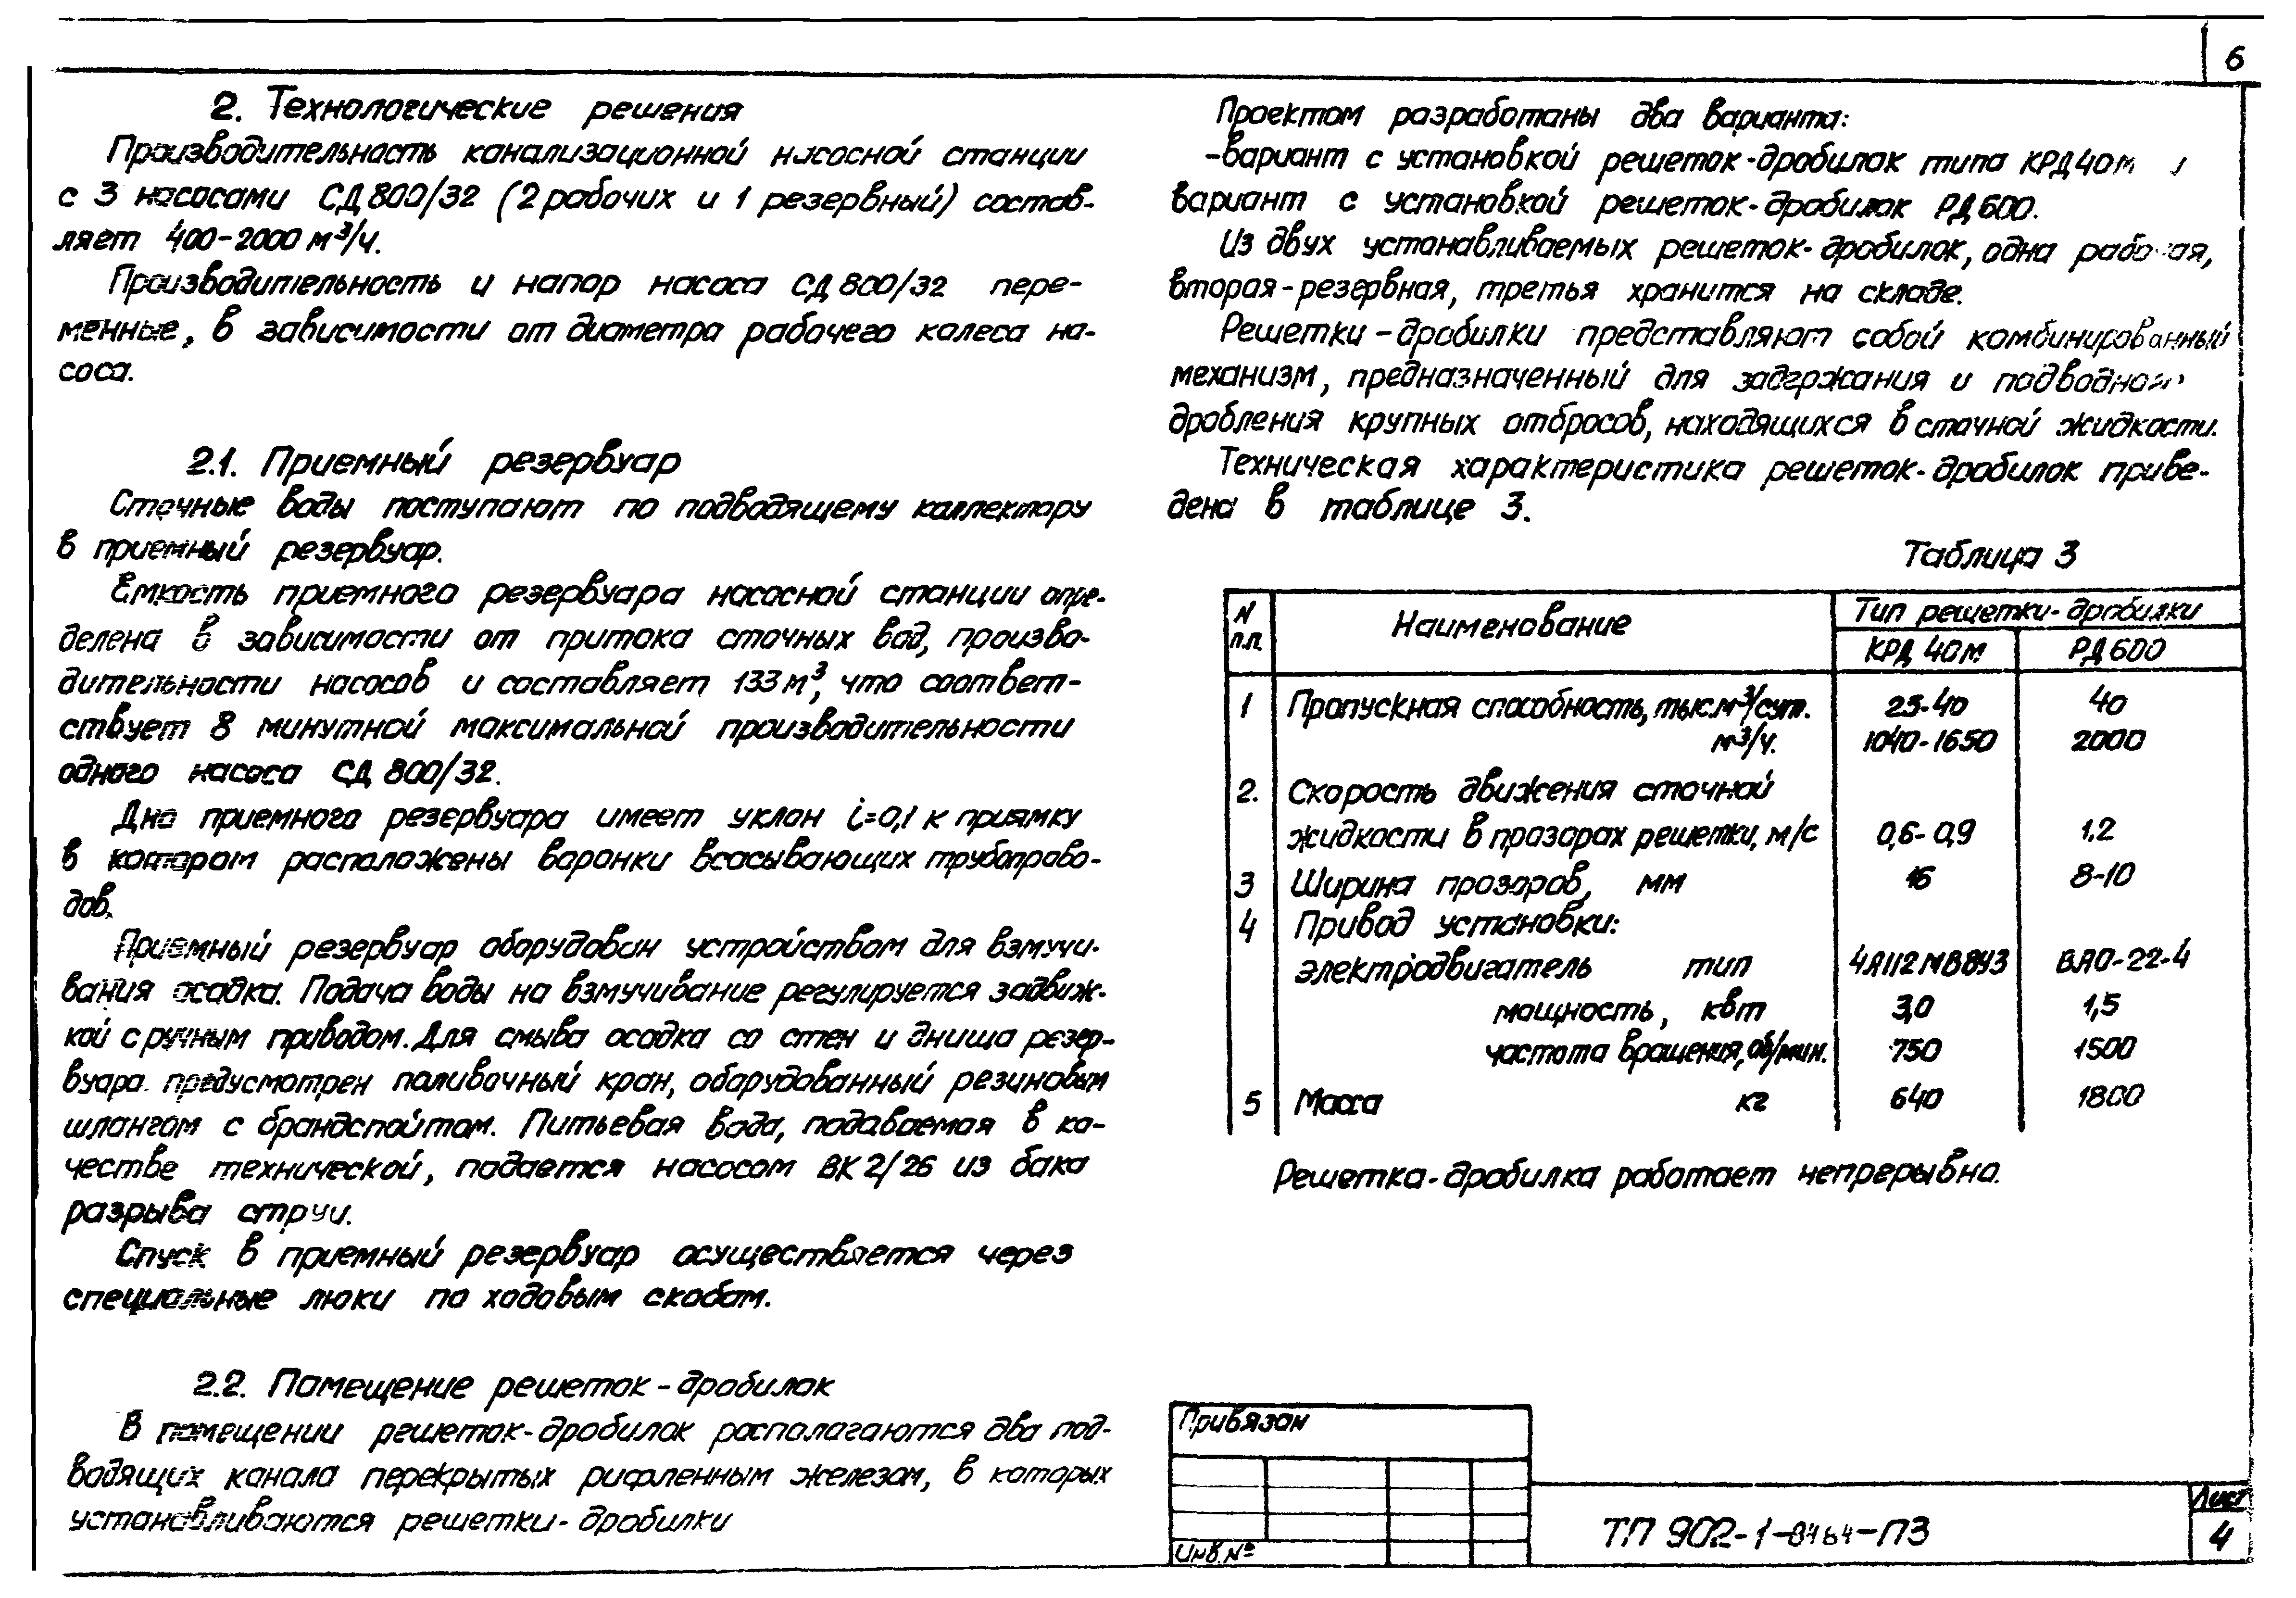 6
2. Технологические решения
Производительность канализационной насосной станции
с 3 насосами СД 800/32 (2 рабочих и 1 резервный) состав-
ляет 400-2000 м³/ч.
Производительность и напор насоса СД 800/32 пере-
менные, в зависимости от диаметра рабочего колеса на-
соса.
2.1. Приемный резервуар
Сточные воды поступают по подводящему коллектору
в приемный резервуар.
Емкость приемного резервуара насосной станции опре-
делена в зависимости от притока сточных вод, произво-
дительности насосов и составляет 133 м³, что соответ-
ствует 8 минутной максимальной производительности
одного насоса СД 800/32.
Дно приемного резервуара имеет уклон i=0,1 к приямку
в котором расположены воронки всасывающих трубопрово-
дов.
Приемный резервуар оборудован устройством для взмучи-
вания осадка. Подача воды на взмучивание регулируется задвиж-
кой с ручным приводом. Для смыва осадка со стен и днища резер-
вуара предусмотрен поливочный кран, оборудованный резиновым
шлангом с брандспойтом. Питьевая вода, подаваемая в ка-
честве технической, подается насосом ВК 2/26 из бака
разрыва струи.
Спуск в приемный резервуар осуществляется через
специальные люки по ходовым скобам.
2.2. Помещение решеток-дробилок
В помещении решеток-дробилок располагаются два под-
водящих канала перекрытых рифленным железом, в которых
устанавливаются решетки-дробилки
Проектом разработаны два варианта:
-вариант с установкой решеток-дробилок типа КРД 40м
вариант с установкой решеток-дробилок РД 600.
Из двух устанавливаемых решеток-дробилок, одна рабочая,
вторая-резервная, третья хранится на складе.
Решетки-дробилки представляют собой комбинированный
механизм, предназначенный для задержания и подводного
дробления крупных отбросов, находящихся в сточной жидкости.
Техническая характеристика решеток-дробилок приве-
дена в таблице 3.
Таблица 3
N п.п. Наименование Тип решетки-дробилки
КРД 40м РД 600
1 Пропускная способность, тыс.м³/сут. 25-40 40
м³/ч. 1040-1650 2000
2. Скорость движения сточной
жидкости в прозорах решетки, м/с 0,6-0,9 1,2
3 Ширина прозоров, мм 16 8-10
4 Привод установки:
электродвигатель тип 4А112МВ8У3 ВАО-22-4
мощность, квт 3,0 1,5
частота вращения, об/мин. 750 1500
5 Масса кг 640 1800
Решетка-дробилка работает непрерывно.
Привязан
Инв.№
ТП 902-1-        -ПЗ
Лист
4